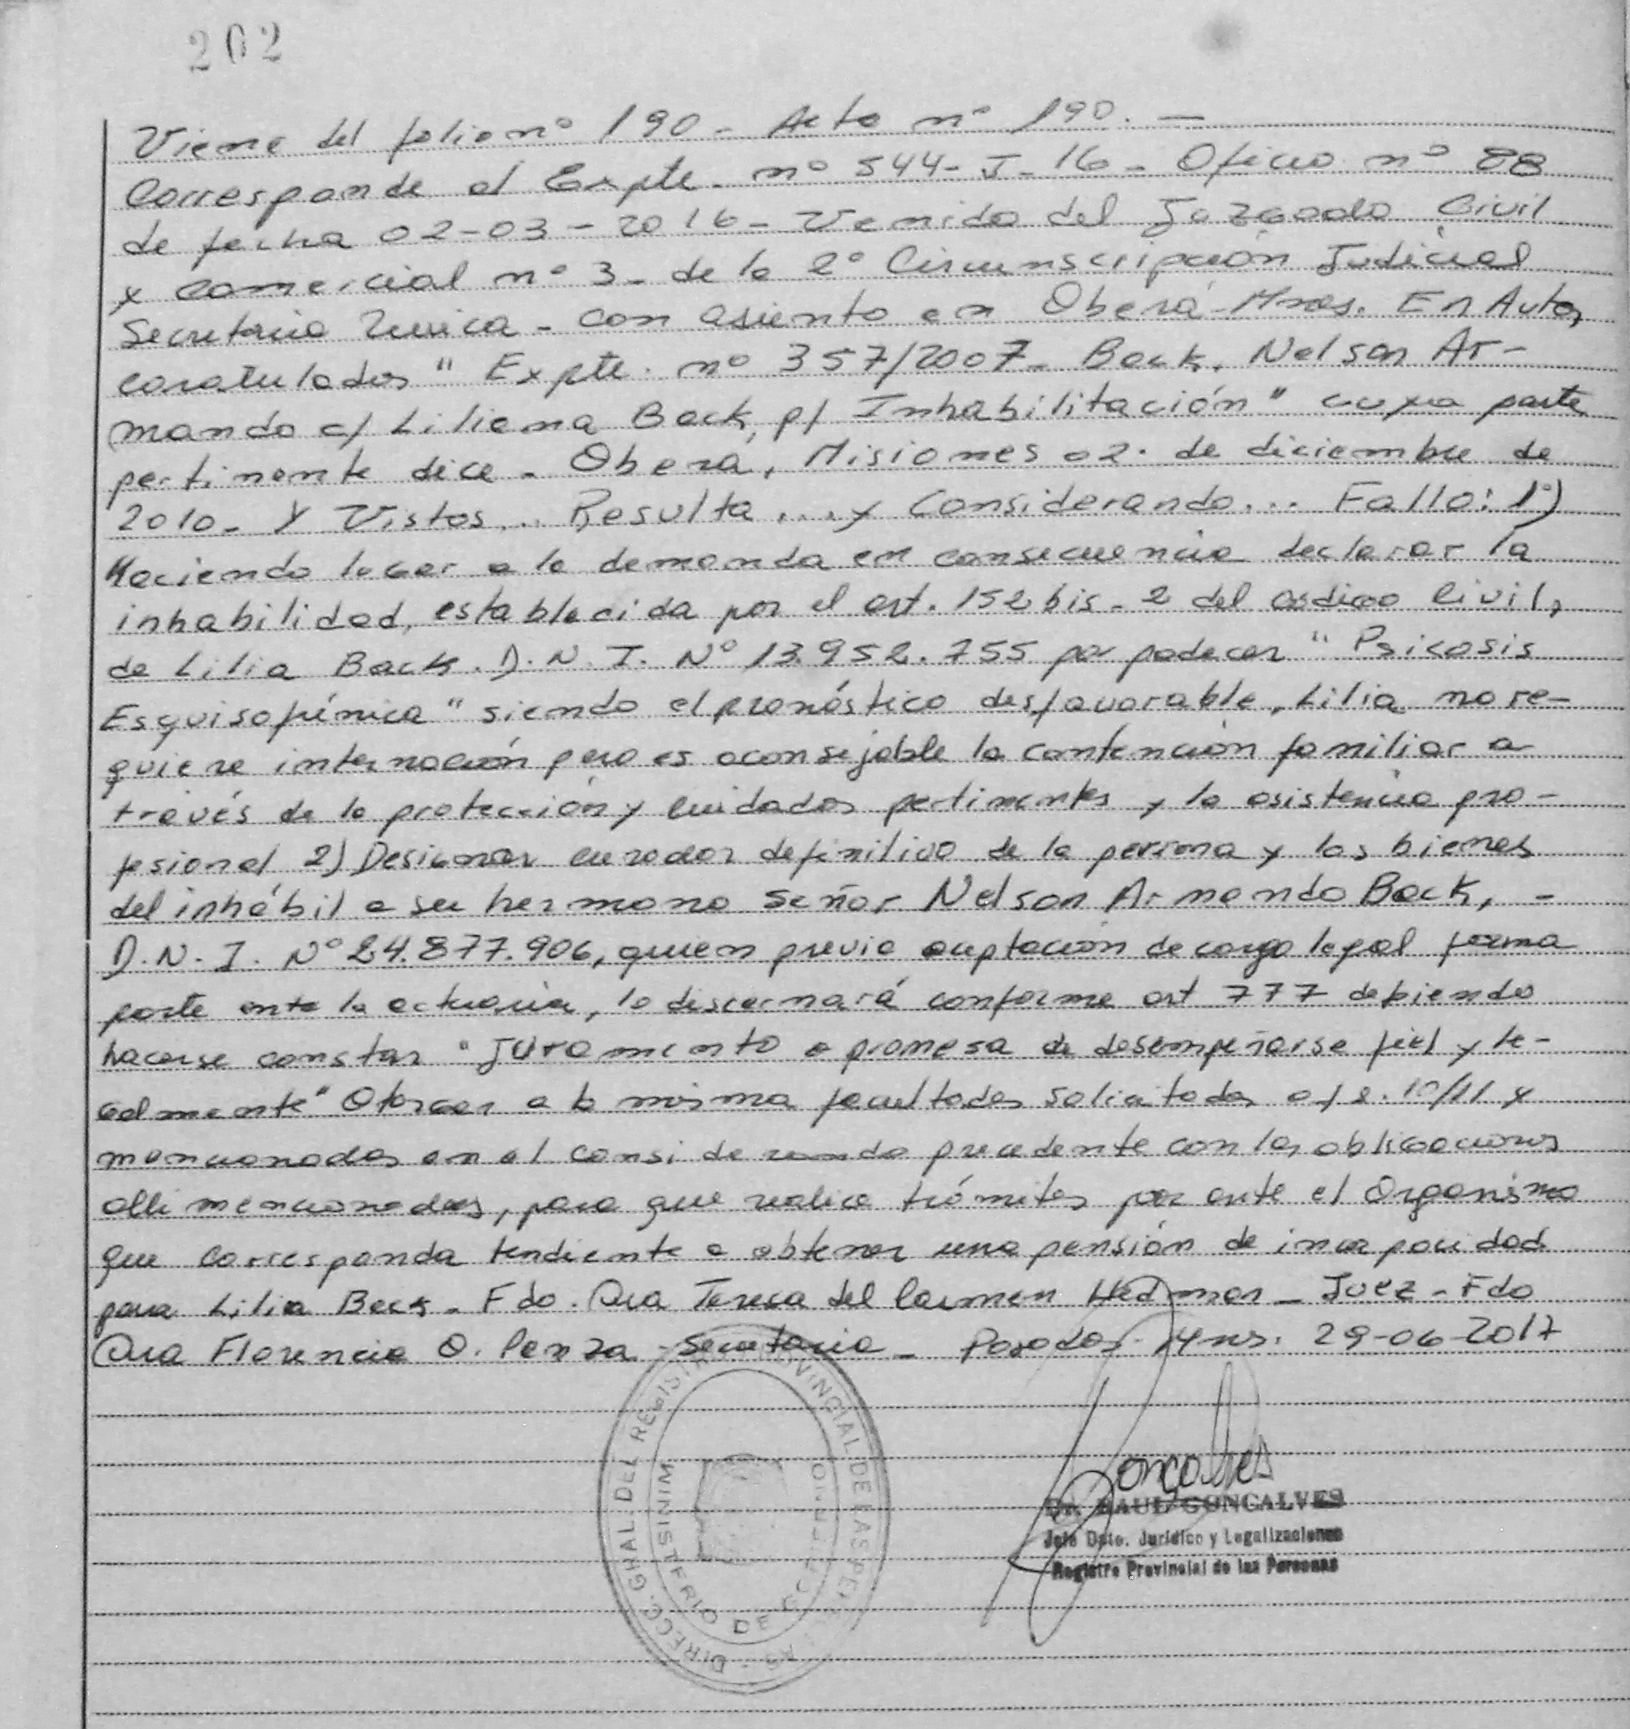 202
Viene del folio nº 190 - Acta nº 190. —
Corresponde al Expte. nº 544-J-16- Oficio nº 88
de fecha 02-03-2016- Venido del Juzgado Civil
y Comercial nº 3- de la 2º Circunscripción Judicial
Secretaria Unica - con asiento en Oberá-Mnes. En Autos
caratulados " Expte. nº 357/2007- Back, Nelson Ar-
mando c/ Liliana Back, p/ Inhabilitación" cuya parte
pertinente dice - Obera, Misiones 02 de diciembre de
2010- Y Vistos... Resulta ... y Considerando... Fallo: 1º)
Haciendo lugar a la demanda en consecuencia declarar la
inhabilidad, establecida por el art. 152 bis - 2 del codigo Civil,
de Lilia Back. D.N.I. Nº 13.952.755 por padecer " Psicosis
Esquisofrénica" siendo el pronóstico desfavorable, Lilia no re-
quiere internación pero es aconsejable la contención familiar a
través de la protección y cuidados pertinentes y la asistencia pro-
fesional 2) Designar curador definitivo de la persona y los bienes
del inhábil a su hermano Señor Nelson Armando Back, -
D.N.I. Nº 24.877.906, quien previa aceptación de cargo legal forma
parte ante la actuaria, lo discernará conforme art 777 debiendo
hacerse constar "Juramento o promesa de desempeñarse fiel y le-
galmente" Otorgar a la misma facultades solicitadas a fs. 10/11 y
mencionadas en el considerando precedente con las obligaciones
alli mencionadas, para que realice trámites por ante el Organismo
que corresponda tendiente a obtener una pensión de incapacidad
para Lilia Back - Fdo. Dra Teresa del Carmen Hedman - Juez - Fdo
Dra Florencia O. Penza - Secretaria - Posadas Mns. 29-06-2017
DIRECC. GRAL DEL REGISTRO PROVINCIAL DE LAS PERSONAS
MINISTERIO DE GOBIERNO
Goncalves
Dr. RAUL GONCALVES
Jefe Dpto. Jurídico y Legalizaciones
Registro Provincial de las Personas